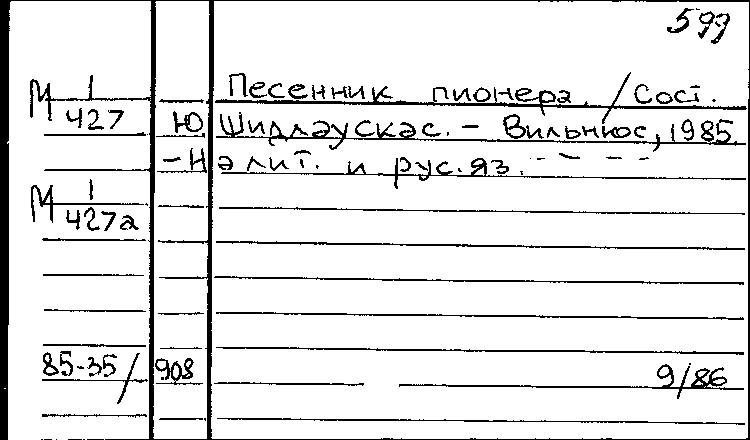 599
М 1/427 Песенник пионера / Сост.
Ю. Шидлаускас. - Вильнюс, 1985.
- На лит. и рус. яз.
М 1/427а
85-35/908 9/86